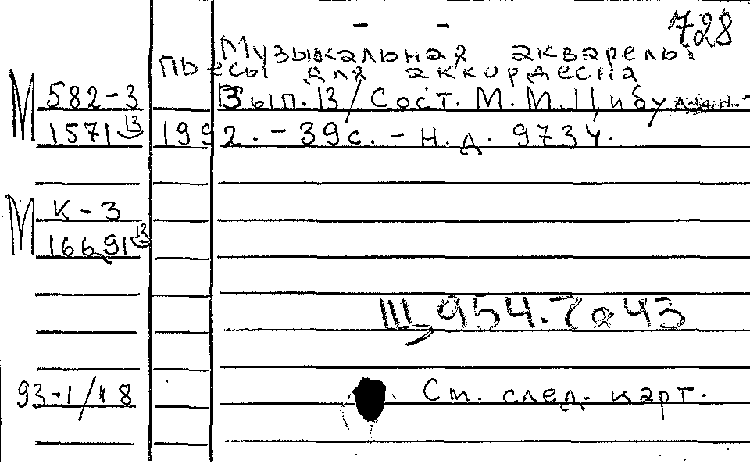 728
Музыкальная акварель:
пьесы для аккордеона
М 582-3 Вып. 13 / Сост. М. М. Цибу
1571 13 1992. - 39с. - Н.д. 9734.
М К-3
16691 13
Щ 954.7я43
93-1/ 8 См. след. карт.